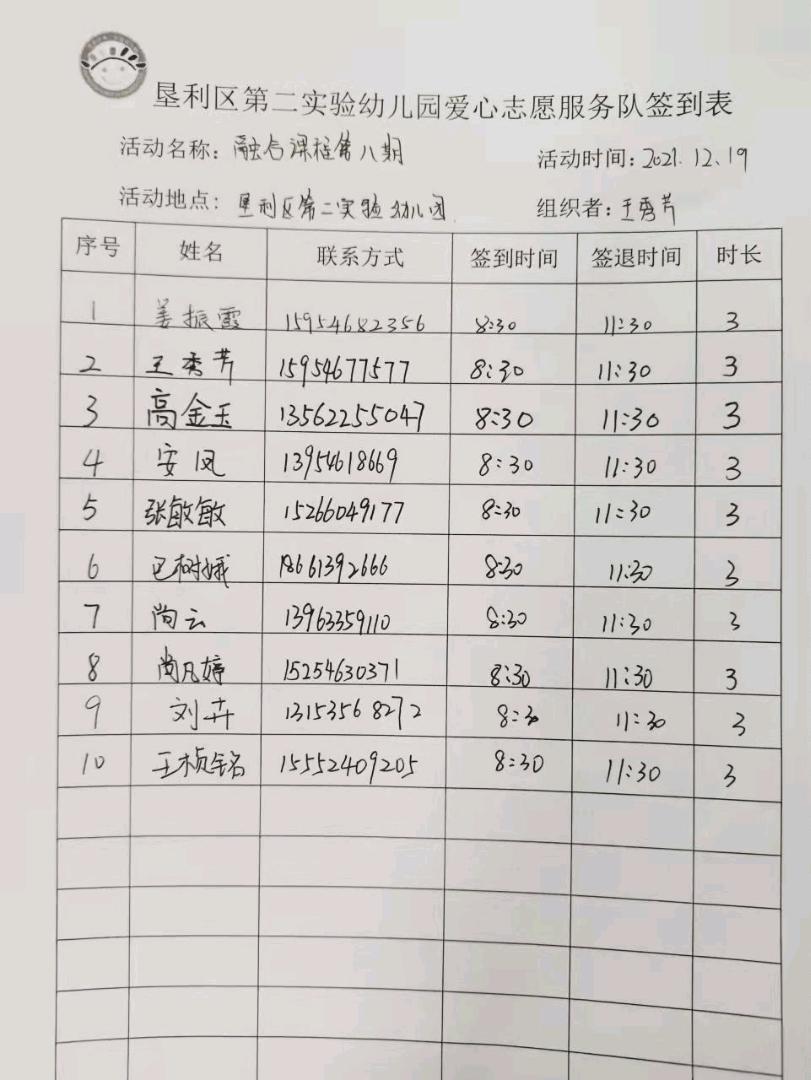 垦利区第二实验幼儿园爱心志愿服务队签到表
活动名称：融合课程第八期 活动时间：2021.12.19
活动地点：垦利区第二实验幼儿园 组织者：王秀芹
序号 姓名 联系方式 签到时间 签退时间 时长
1 姜振霞 15954682356 8:30 11:30 3
2 王秀芹 15954677577 8:30 11:30 3
3 高金玉 13562255047 8:30 11:30 3
4 安凤 13954618669 8:30 11:30 3
5 张敏敏 15266049177 8:30 11:30 3
6 巴树娥 18661392666 8:30 11:30 3
7 尚云 13963359110 8:30 11:30 3
8 尚凡婷 15254630371 8:30 11:30 3
9 刘卉 13153568272 8:30 11:30 3
10 王桢铭 15552409205 8:30 11:30 3